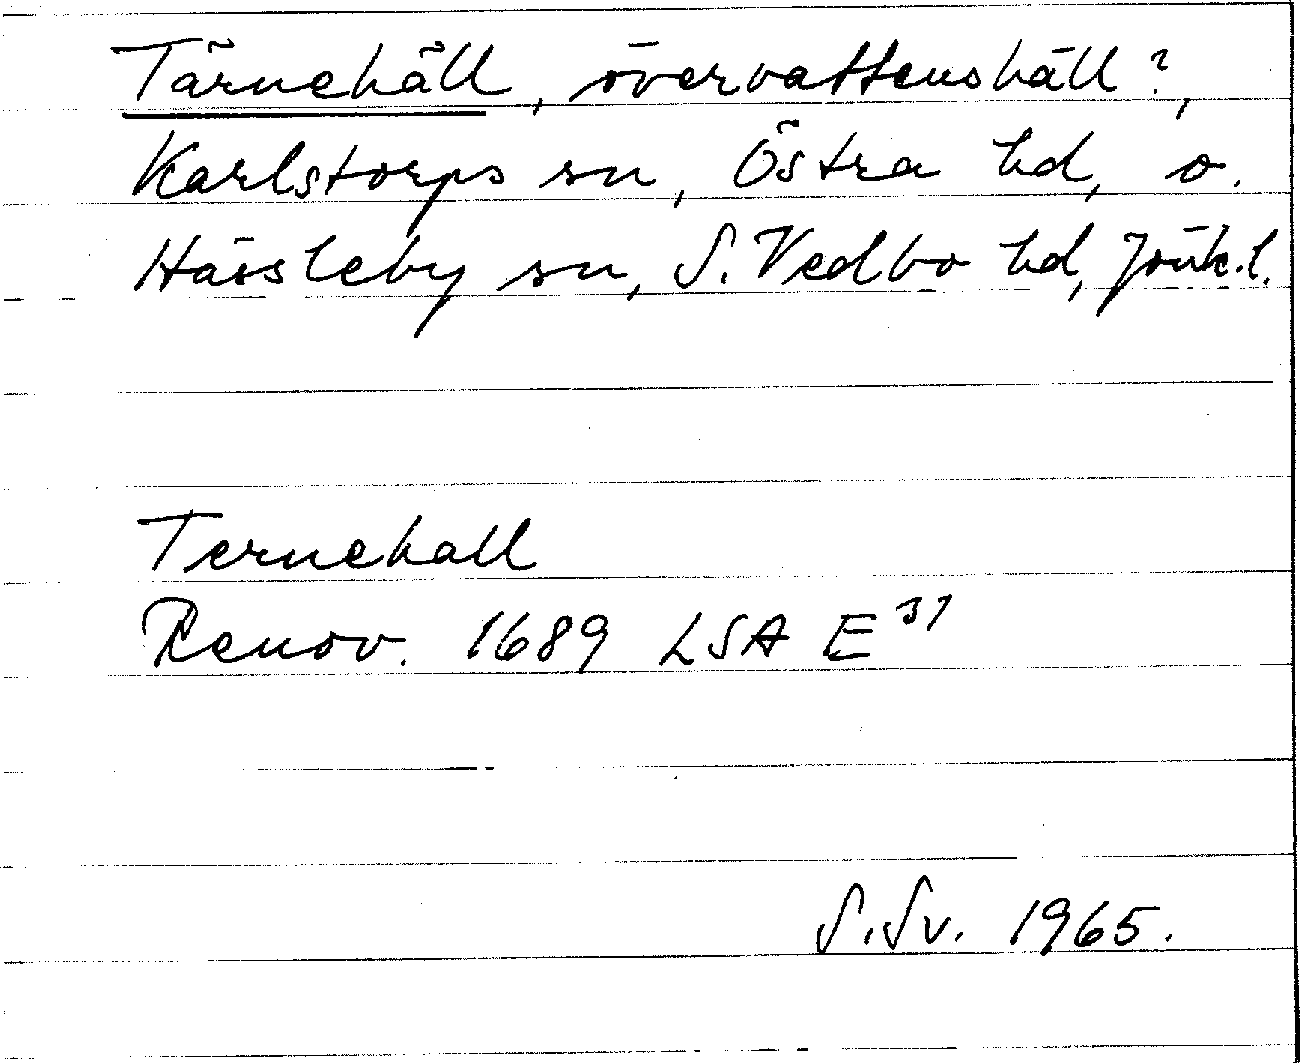 Tärnehäll, övervattenshäll?,
Karlstorps sn, Östra hd, o.
Hässleby sn, S. Vedbo hd, Jönk. l.
Ternehall
Renov. 1689 LSA E³¹
S. Sv. 1965.